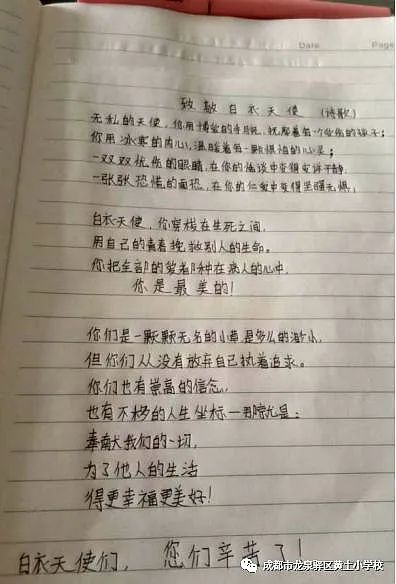 Date
Page
致敬白衣天使 (诗歌)
无私的天使,你用博爱的手臂,抚摩着每一个受伤的孩子;
你用冰寒的内心,温暖着每一颗惧怕的心灵;
一双双忧伤的眼睛,在你的倾谈中变得安详平静,
一张张恐慌的面孔,在你的仁爱中变得坚强无惧,
白衣天使,你穿梭在生死之间,
用自己的青春挽救别人的生命。
你把全部的爱都种在病人的心中,
你是最美的!
你们是一颗颗无名的小草,是多么的渺小,
但你们从没有放弃自己执着追求。
你们也有崇高的信念,
也有不朽的人生坐标一那就是:
奉献我们的一切,
为了他人的生活
得更幸福更美好!
白衣天使们, 您们辛苦了!
成都市龙泉驿区黄土小学校